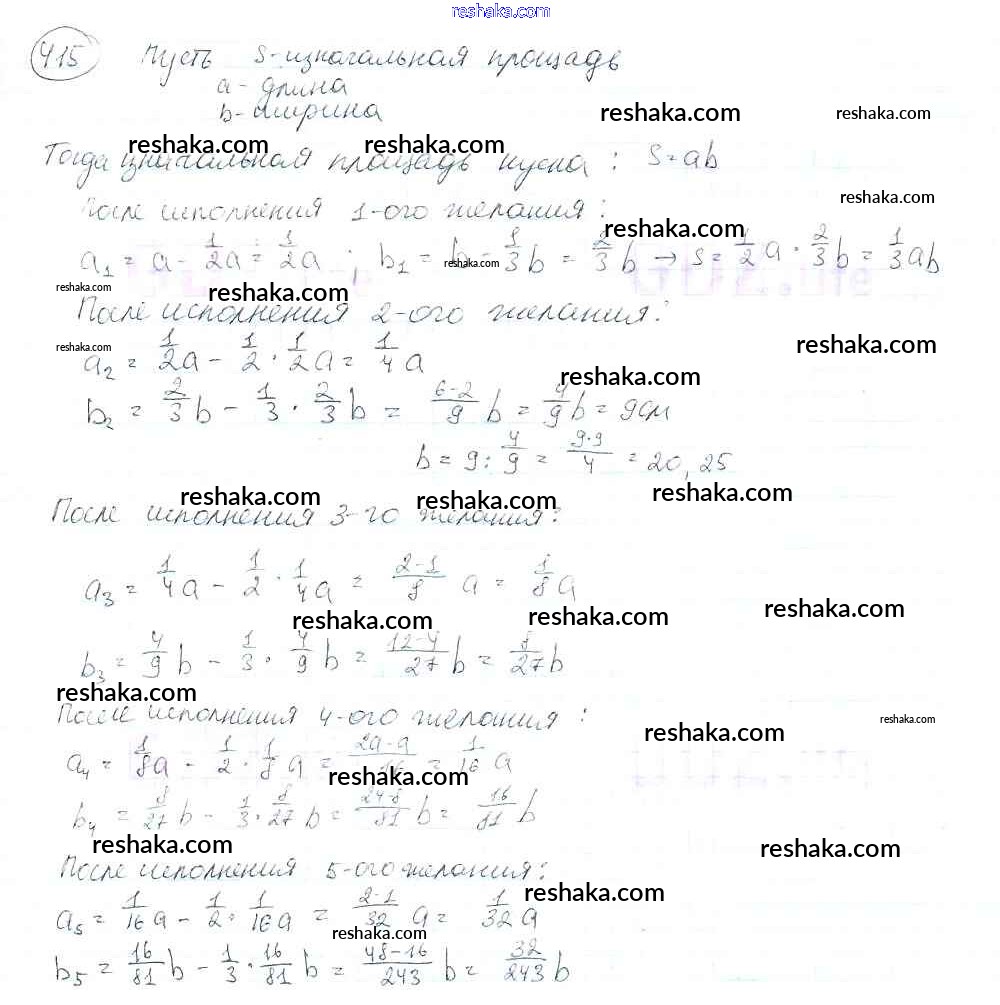 reshaka.com
415 Пусть S-изначальная площадь
a - длина
b - ширина
reshaka.com reshaka.com
reshaka.com reshaka.com
Тогда изначальная площадь куска : S = ab
reshaka.com
После исполнения 1-ого желания :
reshaka.com
a₁ = a - 1/2a = 1/2a ; b₁ = b - 1/3 b = 2/3 b → S = 1/2 a · 2/3 b = 1/3 ab
reshaka.com reshaka.com
После исполнения 2-ого желания :
reshaka.com reshaka.com
a₂ = 1/2a - 1/2 · 1/2 a = 1/4 a
reshaka.com
b₂ = 2/3 b - 1/3 · 2/3 b = 6-2/9 b = 4/9 b = 9см
b = 9 : 4/9 = 9·9/4 = 20,25
reshaka.com reshaka.com reshaka.com
После исполнения 3-го желания :
a₃ = 1/4 a - 1/2 · 1/4 a = 2-1/8 a = 1/8 a
reshaka.com reshaka.com reshaka.com
b₃ = 4/9 b - 1/3 · 4/9 b = 12-4/27 b = 8/27 b
reshaka.com
После исполнения 4-ого желания :
reshaka.com reshaka.com
a₄ = 1/8a - 1/2 · 1/8 a = 2a-a/16 = 1/16 a
reshaka.com
b₄ = 8/27 b - 1/3 · 8/27 b = 24-8/81 b = 16/81 b
reshaka.com reshaka.com
После исполнения 5-ого желания :
reshaka.com
a₅ = 1/16 a - 1/2 · 1/16 a = 2-1/32 a = 1/32 a
reshaka.com
b₅ = 16/81 b - 1/3 · 16/81 b = 48-16/243 b = 32/243 b